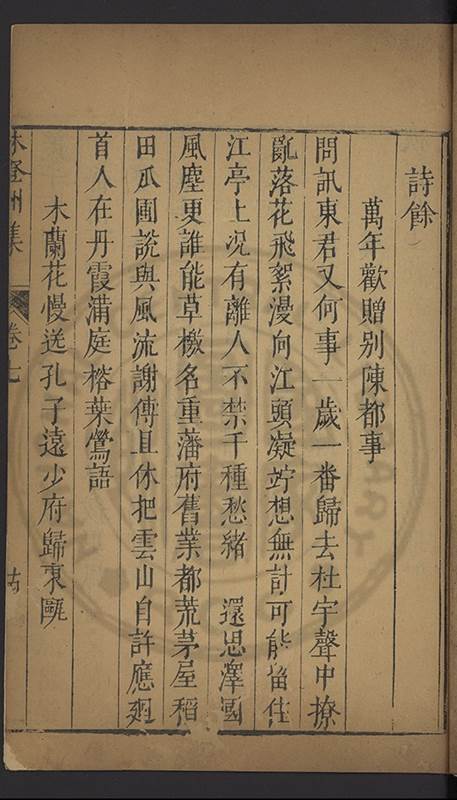 詩餘
萬年歡贈别陳都事
問訊東君又何事一歲一番歸去杜宇聲中撩
亂落花飛絮漫向江頭凝竚想無計可能留住
江亭上况有離人不禁千種愁緒　還思澤國
風塵更誰能草檄名重藩府舊業都荒茅屋稻
田瓜圃謊與風流謝傅且休把雲山自許應廻
首人在丹霞滿庭榕葉鶯語
木蘭花慢送孔子遠少府歸東甌
林登州集
卷七